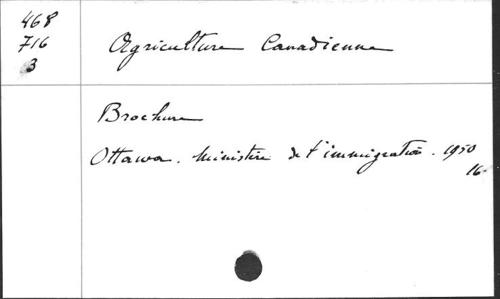 468
716
3
Agriculture Canadienne
Brochure
Ottawa. Ministère de l'immigration. 1950
16